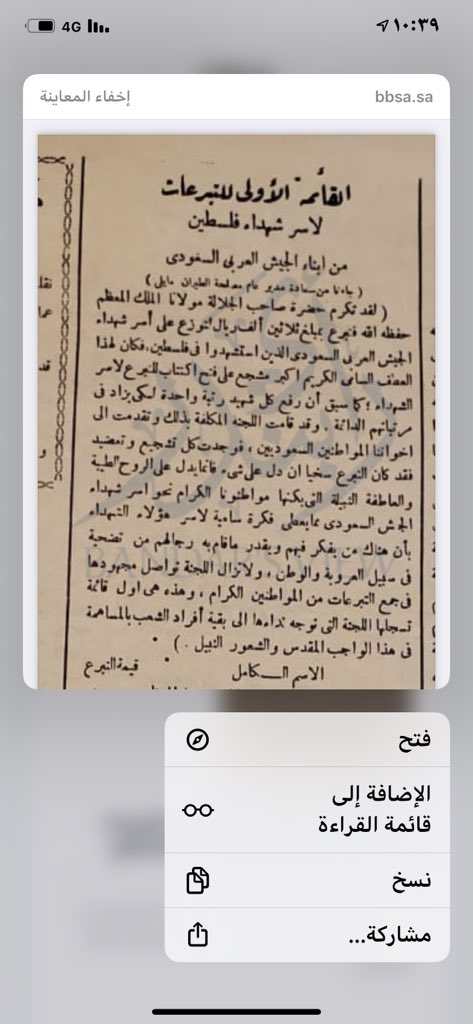 ١٠:٣٩
4G
bbsa.sa
إخفاء المعاينة
القائمة الأولى للتبرعات
لاسر شهداء فلسطين
من ابناء الجيش العربى السعودى
( جاءنا من سعادة مدير عام مصلحة الطيران مايلى )
( لقد تكرم حضرة صاحب الجلالة مولانا الملك المعظم
حفظه الله فتبرع بمبلغ ثلاثين ألف ريال لتوزع على أسر شهداء
الجيش العربى السعودى الذين استشهدوا فى فلسطين، فكان لهذا
العطف السامى الكريم اكبر مشجع على فتح اكتتاب للتبرع لاسر
الشهداء ؛ كما سبق أن رفع كل شهيد رتبة واحدة لكى يزاد فى
مرتباتهم الدائمة . وقد قامت اللجنه المكلفة بذلك وتقدمت الى
اخواننا المواطنين السعوديين ، فوجدت كل تشجيع وتعضيد
فقد كان التبرع سخيا ان دل على شىء فانما يدل على الروح الطيبة
والعاطفة النبيلة التى يكنها مواطنونا الكرام نحو اسر شهداء
الجيش السعودى مما يعطى فكرة سامية لاسر هؤلاء الشهداء
بأن هناك من يفكر فيهم ويقدر ماقام به رجالهم من تضحية
فى سبيل العروبة والوطن ، ولا تزال اللجنة تواصل مجهودها
فى جمع التبرعات من المواطنين الكرام ، وهذه هى اول قائمة
تسجلها اللجنة التى توجه نداءها الى بقية أفراد الشعب بالمساهمة
فى هذا الواجب المقدس والشعور النبيل . )
الاسم الكامل قيمة التبرع
فتح
الإضافة إلى
قائمة القراءة
نسخ
مشاركة...